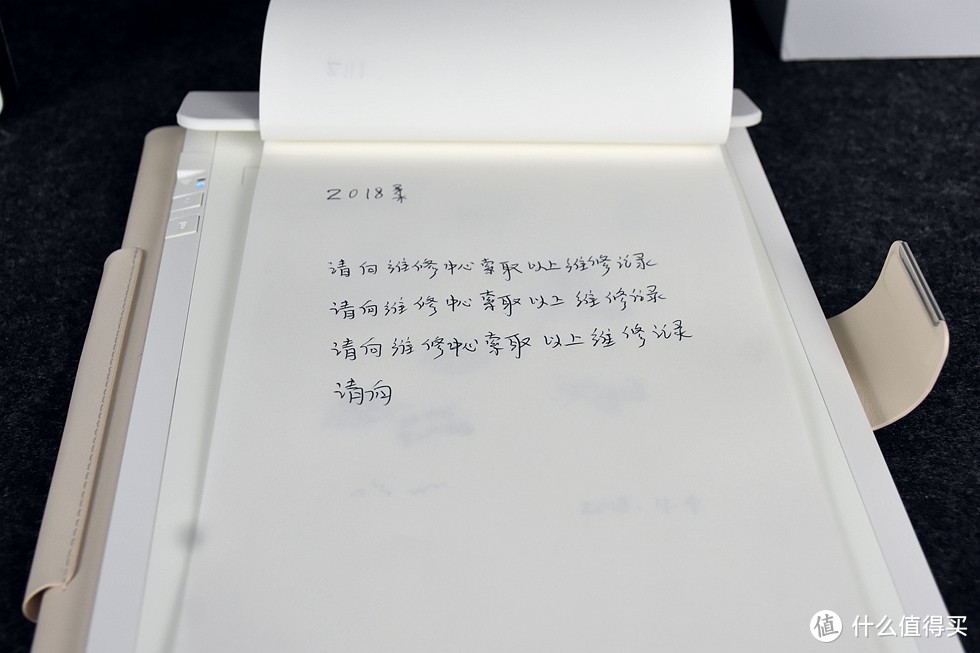 2018柔
请向维修中心索取以上维修记录
请向维修中心索取以上维修记录
请向维修中心索取以上维修记录
请向
值 什么值得买